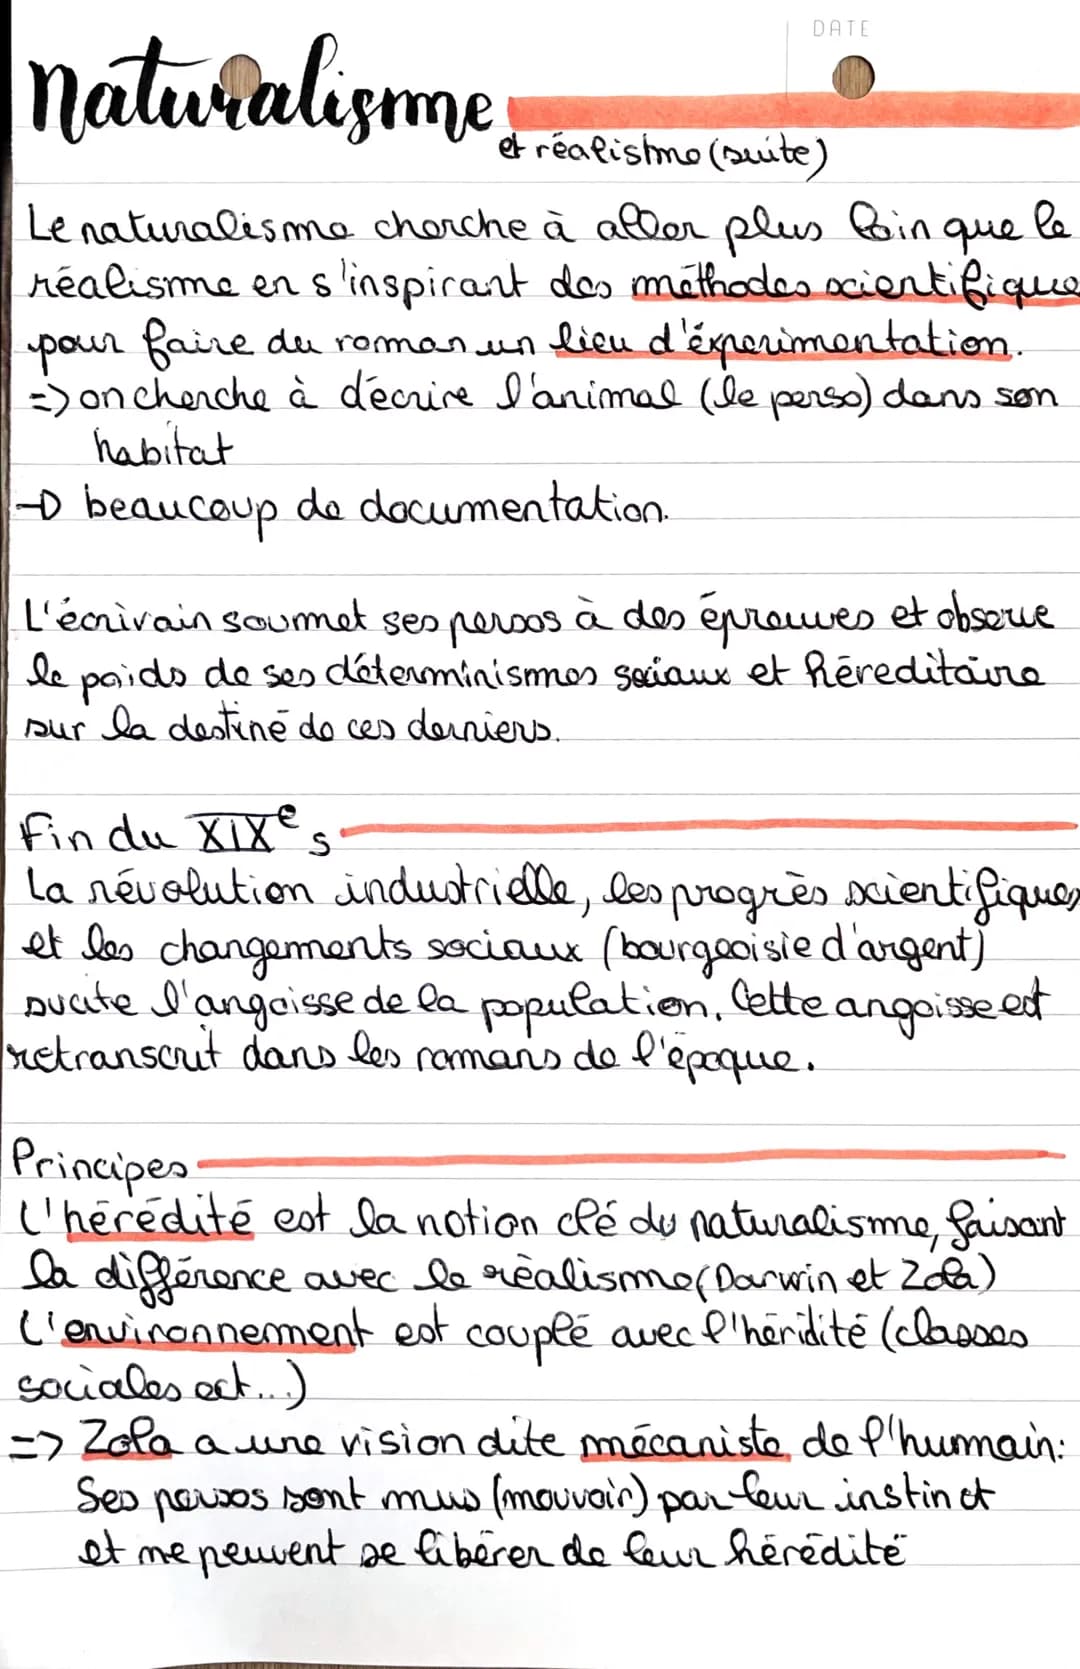 DATE
Naturalisme
et réalisme (suite)
Le naturalisme cherche à aller plus loin que le
réalisme en s'inspirant des méthodes scientifique
pour faire du roman un lieu d'éxperimentation.
=> on cherche à décrire l'animal (le perso) dans son
habitat
→ beaucoup de documentation.
L'écrivain soumet ses persos à des épreuves et observe
le poids de ses déterminismes sociaux et héreditaire
sur la destiné de ces derniers.
Fin du XIXe s
La révolution industrielle, les progrès scientifiques
et les changements sociaux (bourgeoisie d'argent)
sucite l'angoisse de la population. Cette angoisse est
retranscrit dans les romans de l'époque.
Principes
L'hérédité est la notion clé du naturalisme, faisant
la différence avec le réalisme (Darwin et Zola)
L'environnement est couplé avec l'héridité (classes
sociales ect...)
=> Zola a une vision dite mécaniste de l'humain:
Ses persos sont mus (mouvoir) par leur instinct
et ne peuvent se libérer de leur hérédité